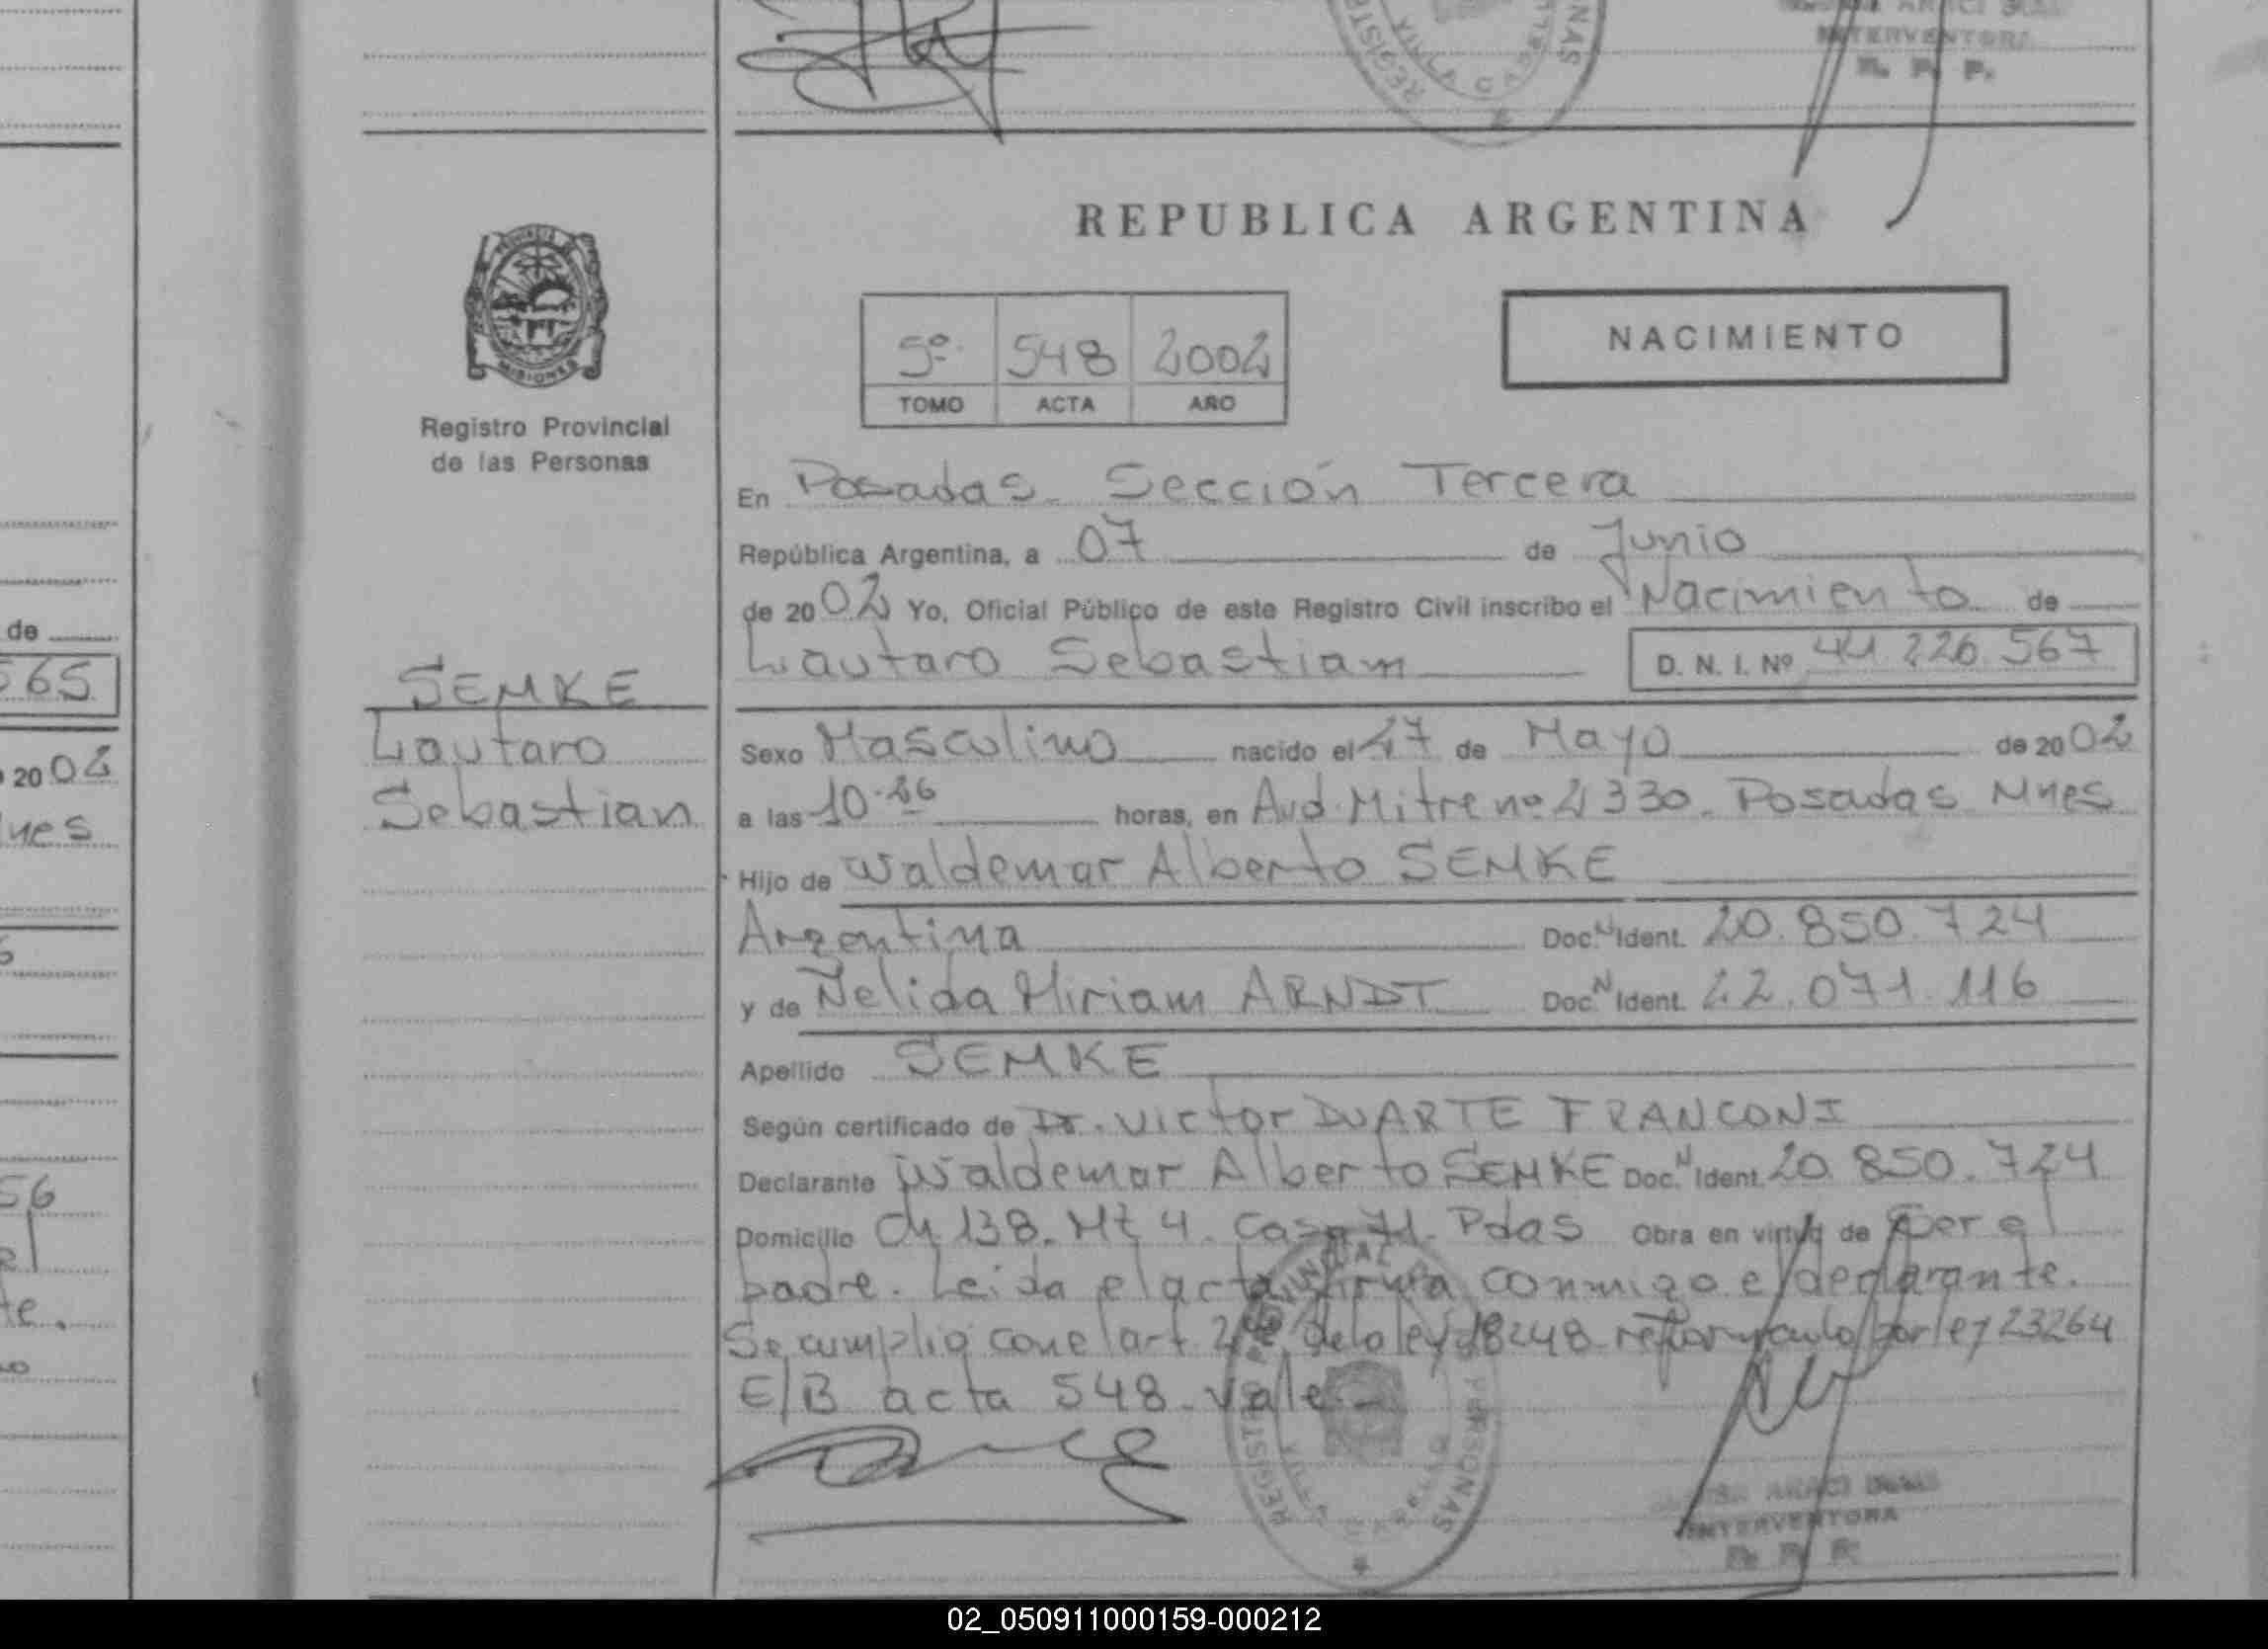 REGISTRO
INTERVENTORA
R. P. P.
565
de
20 02
nes
REPUBLICA ARGENTINA
NACIMIENTO
5º 548 2002
TOMO ACTA AÑO
PROVINCIA DE
MISIONES
Registro Provincial
de las Personas
En Posadas. Sección Tercera
República Argentina, a 07 de Junio
de 20 02 Yo, Oficial Público de este Registro Civil inscribo el Nacimiento de
Lautaro Sebastian D. N. I. Nº 44.226.567
SEMKE
Lautaro
Sebastian
Sexo Masculino nacido el 27 de Mayo de 20 02
a las 10.26 horas, en Avd. Mitre nº 2330. Posadas Mnes
Hijo de Waldemar Alberto SEMKE
Argentina Doc. N Ident. 20.850.724
y de Nelida Miriam ARNDT Doc. N Ident. 22.071.116
Apellido SEMKE
Según certificado de Dr. Victor DUARTE FRANCONI
Declarante Waldemar Alberto SEMKE Doc. N Ident. 20.850.724
Domicilio Ch 138. Mz 4. Casa 71. Pdas Obra en virtud de Ser el
padre. Leida el acta firma conmigo el declarante.
Se cumplio con el art 2º de la ley 18248 reformado por ley 23264
E/B acta 548. Vale.
REGISTRO PROVINCIAL PERSONAS
INTERVENTORA
R. P. P.
02_050911000159-000212